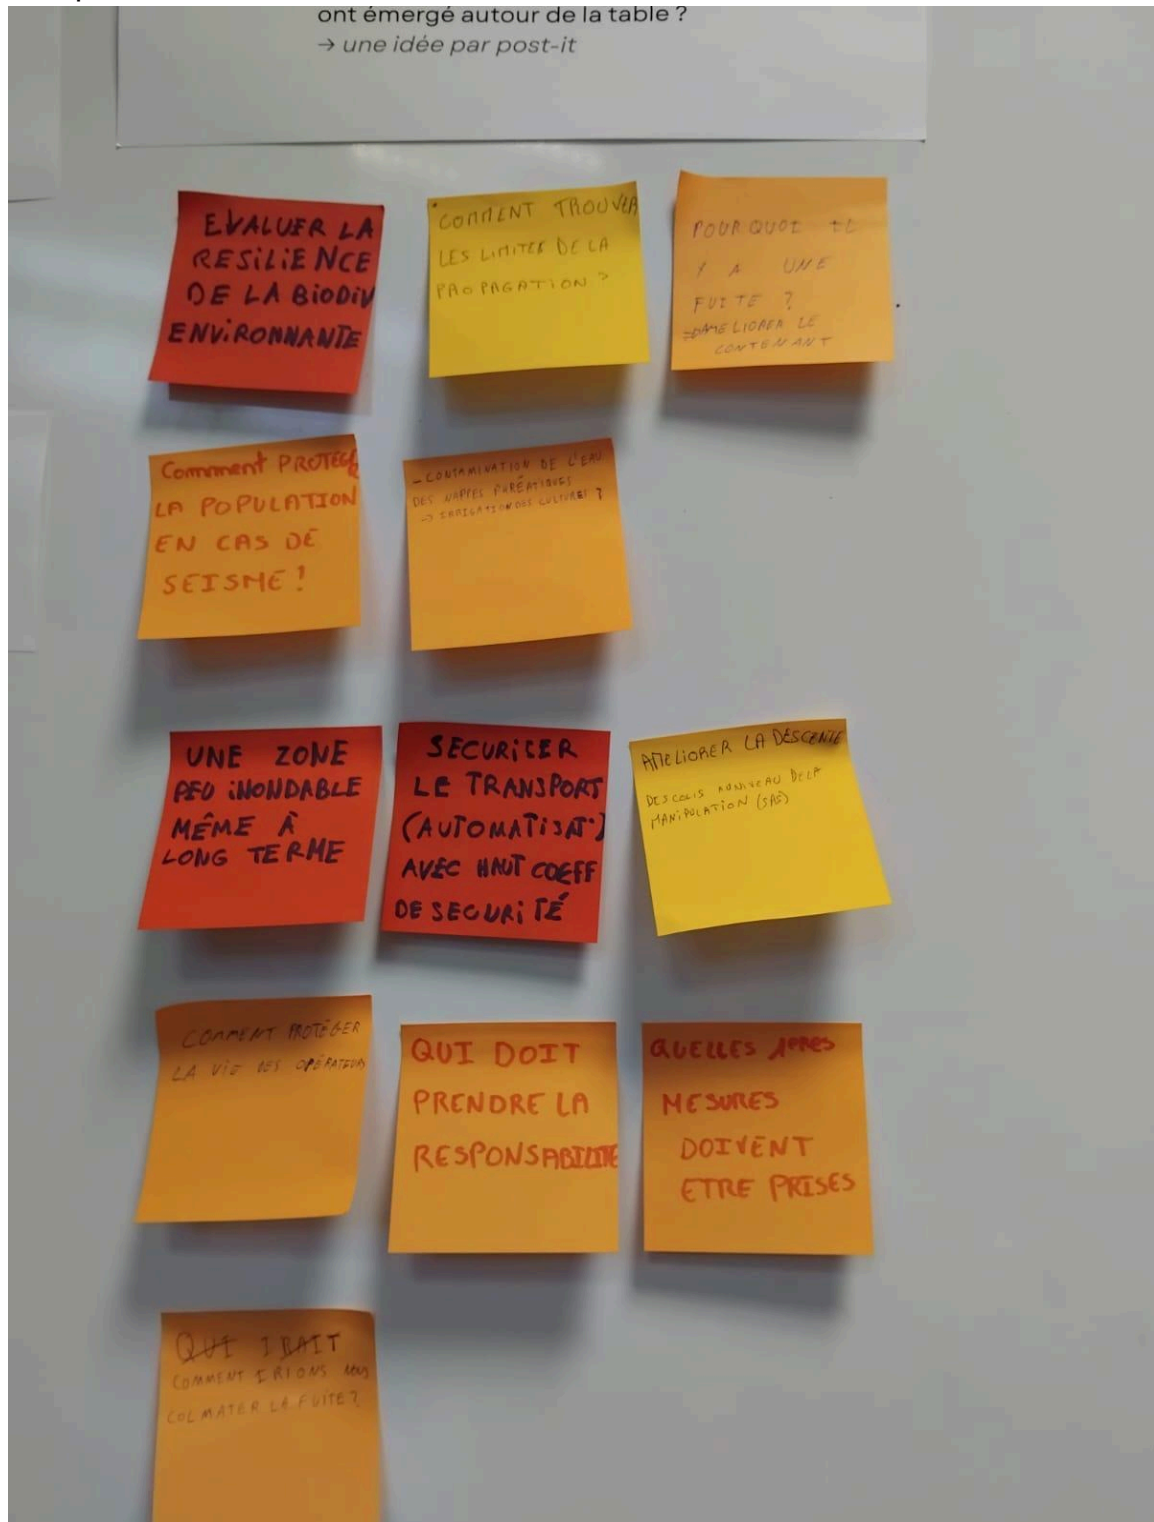 ont émergé autour de la table ?
→ une idée par post-it
EVALUER LA
RESILIENCE
DE LA BIODIV
ENVIRONNANTE
COMMENT TROUVER
LES LIMITES DE LA
PROPAGATION ?
POURQUOI IL
Y A UNE
FUITE ?
⇒ AMELIORER LE
CONTENANT
Comment PROTEGER
LA POPULATION
EN CAS DE
SEISME !
- CONTAMINATION DE L'EAU
DES NAPPES PHRÉATIQUES
→ IRRIGATION DES CULTURES ?
UNE ZONE
PEU INONDABLE
MÊME À
LONG TERME
SECURISER
LE TRANSPORT
(AUTOMATISAT°)
AVEC HAUT COEFF
DE SECURITÉ
AMELIORER LA DESCENTE
DES COLIS AU NIVEAU DE LA
MANIPULATION (SAS)
COMMENT PROTÉGER
LA VIE DES OPÉRATEURS
QUI DOIT
PRENDRE LA
RESPONSABILITE
QUELLES 1ères
MESURES
DOIVENT
ETRE PRISES
QUI IRAIT
COMMENT IRIONS nous
COLMATER LA FUITE ?